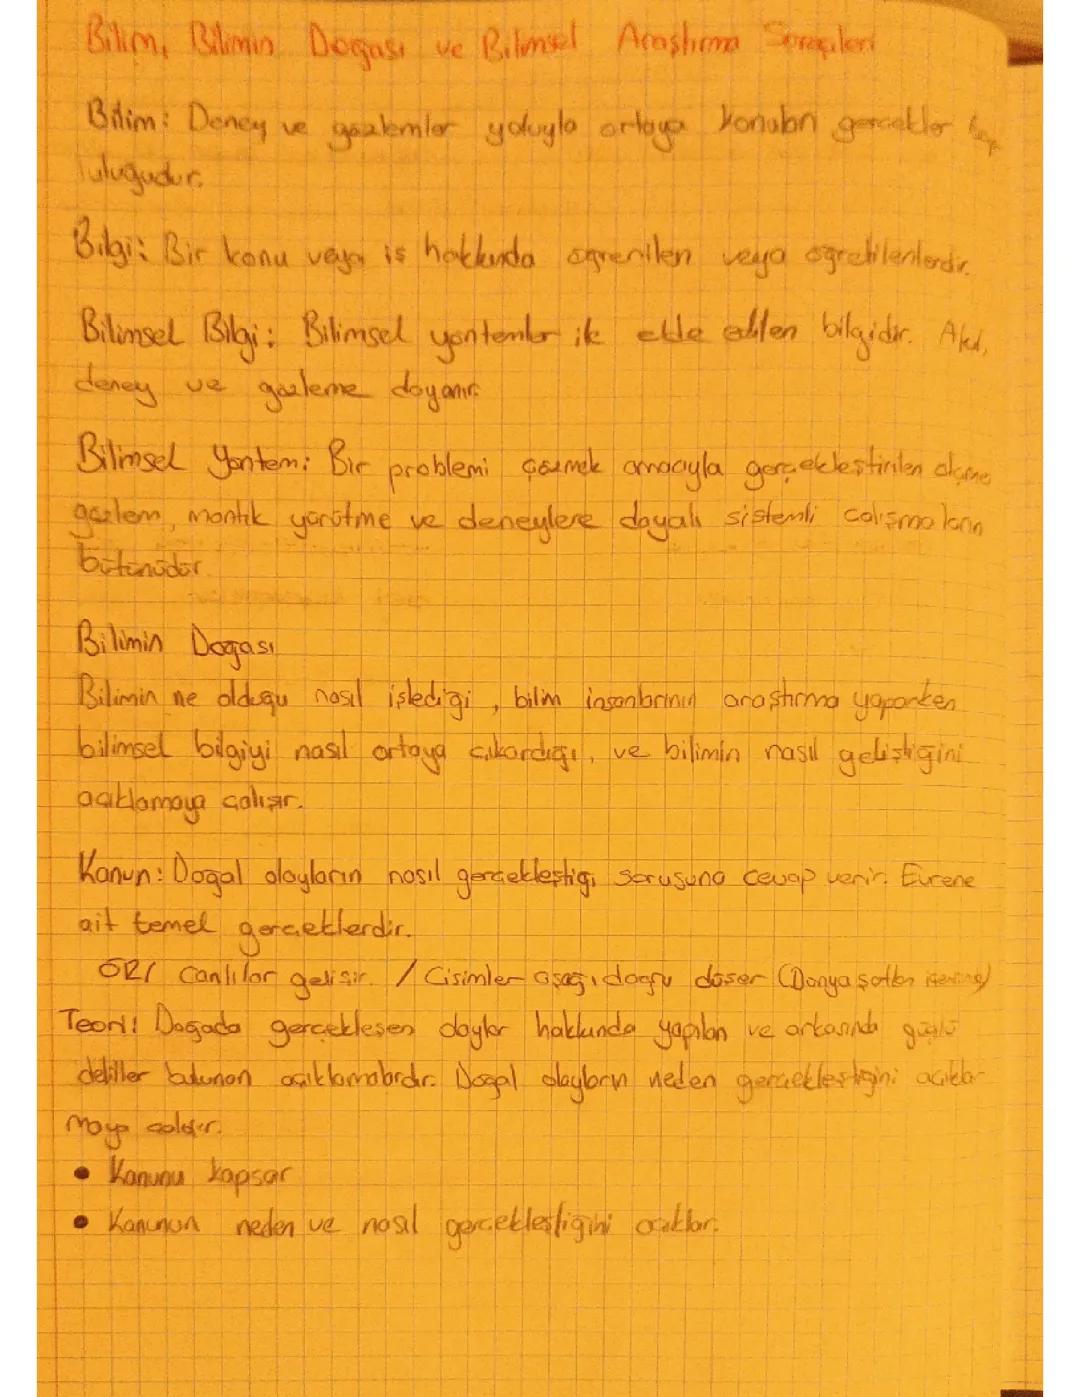 Bilim, Bilimin Doğası ve Bilimsel Araştırma Süreçleri
Bilim: Deney ve gözlemler yoluyla ortaya konulan gerçekler
luluğudur.
Bilgi: Bir konu veya iş hakkında öğrenilen veya öğretilenlerdir.
Bilimsel Bilgi: Bilimsel yöntemler ile elde edilen bilgidir. Akıl,
deney ve gözleme dayanır.
Bilimsel Yöntem: Bir problemi çözmek amacıyla gerçekleştirilen ölçme
gözlem, mantık yürütme ve deneylere dayalı sistemli calışmaların
bütünüdür.
Bilimin Doğası
Bilimin ne olduğu nasıl işlediği, bilim insanlarının araştırma yaparken
bilimsel bilgiyi nasıl ortaya çıkardığı, ve bilimin nasıl geliştiğini
açıklamaya çalışır.
Kanun: Doğal olayların nasıl gerçekleştiği sorusuna cevap verir. Evrene
ait temel gerçeklerdir.
ÖR/ Canlılar gelişir. / Cisimler aşağı doğru düşer (Dünya şartları
Teori: Doğada gerçekleşen olaylar hakkında yapılan ve arkasında güçlü
deliller bulunan açıklamalardır. Doğal olayların neden gerçekleştiğini açıkla-
maya çalışır.
• Kanunu kapsar
• Kanunun neden ve nasıl gerçekleştiğini açıklar.